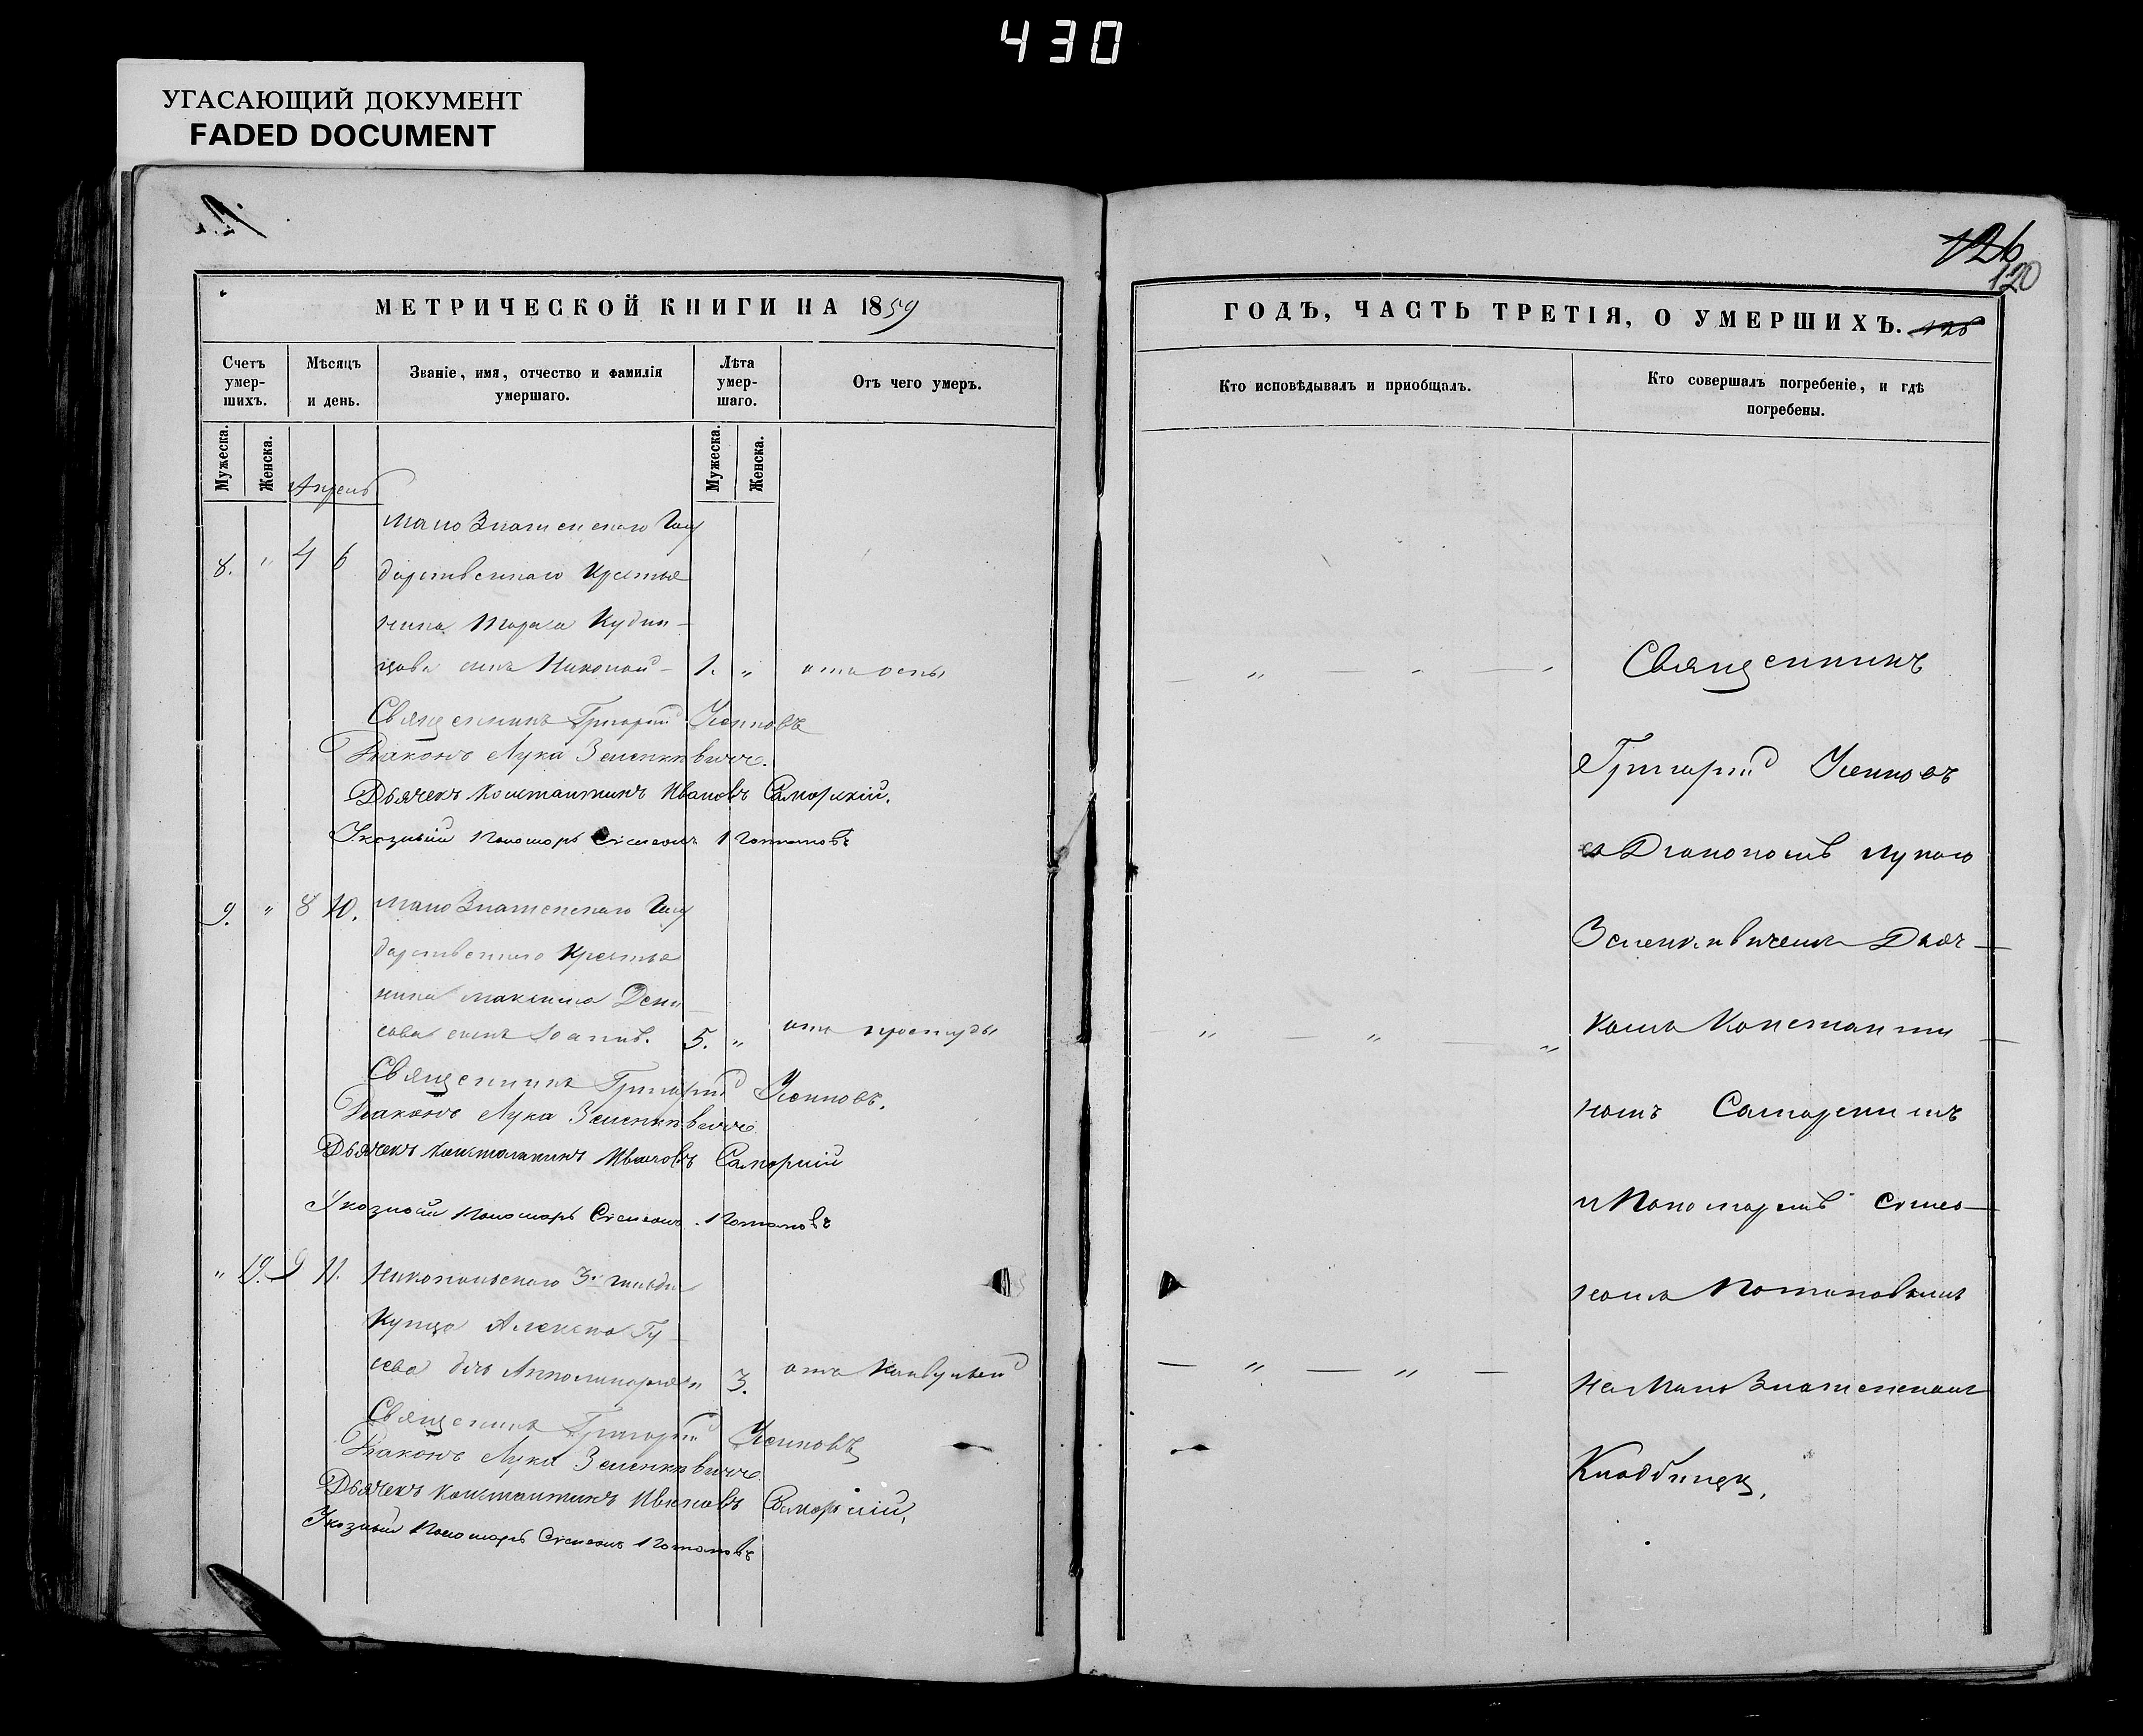 430
УГАСАЮЩИЙ ДОКУМЕНТ
FADED DOCUMENT
126
120
МЕТРИЧЕСКОЙ КНИГИ НА 1859
Счетъ умер-шихъ.
Мѣсяцъ и день.
Званіе, имя, отчество и фамилія умершаго.
Лѣта умер-шаго.
Отъ чего умеръ.
Мужеска.
Женска.
Мужеска.
Женска.
Апрель
Мало Знаменскаго Госу
8. " 4 6 дарственнаго Крестья
нина Марка Кудин-
цова сынъ Николай - 1. " отъ оспы
Священникъ Григорій Усиновъ
Діаконъ Лука Зеленкевичъ.
Дьячекъ Константинъ Ивановъ Саморскій.
Указный Пономарь Стефанъ Потаповъ
9. " 8 10. Мало Знаменскаго Госу
дарственнаго Крестья
нина Максима Дени
сова сынъ Іоаннъ. 5. " отъ простуды
Священникъ Григорій Усиновъ.
Діаконъ Лука Зеленкевичъ
Дьячекъ Константинъ Ивановъ Саморскій
Указный Пономарь Стефанъ Потаповъ
" 9 11. Никопольскаго 3й гильдіи
Купца Алексѣя Гу-
сева дчь Апполинарія " 3. отъ Конвульсій
Священникъ Григорій Усиновъ
Діаконъ Лука Зеленкевичъ
Дьячекъ Константинъ Ивановъ Саморскій.
Указный Пономарь Стефанъ Потаповъ
ГОДЪ, ЧАСТЬ ТРЕТІЯ, О УМЕРШИХЪ.
Кто исповѣдывалъ и приобщалъ.
Кто совершалъ погребеніе, и гдѣ погребены.
Священникъ
Григорій Усиновъ
съ Діакономъ Лукою
Зеленкевичемъ Дьяч-
комъ Константи-
номъ Саморскимъ
и Пономаремъ Стефа-
номъ Потаповымъ
На Мало Знаменскомъ
Кладбищѣ.